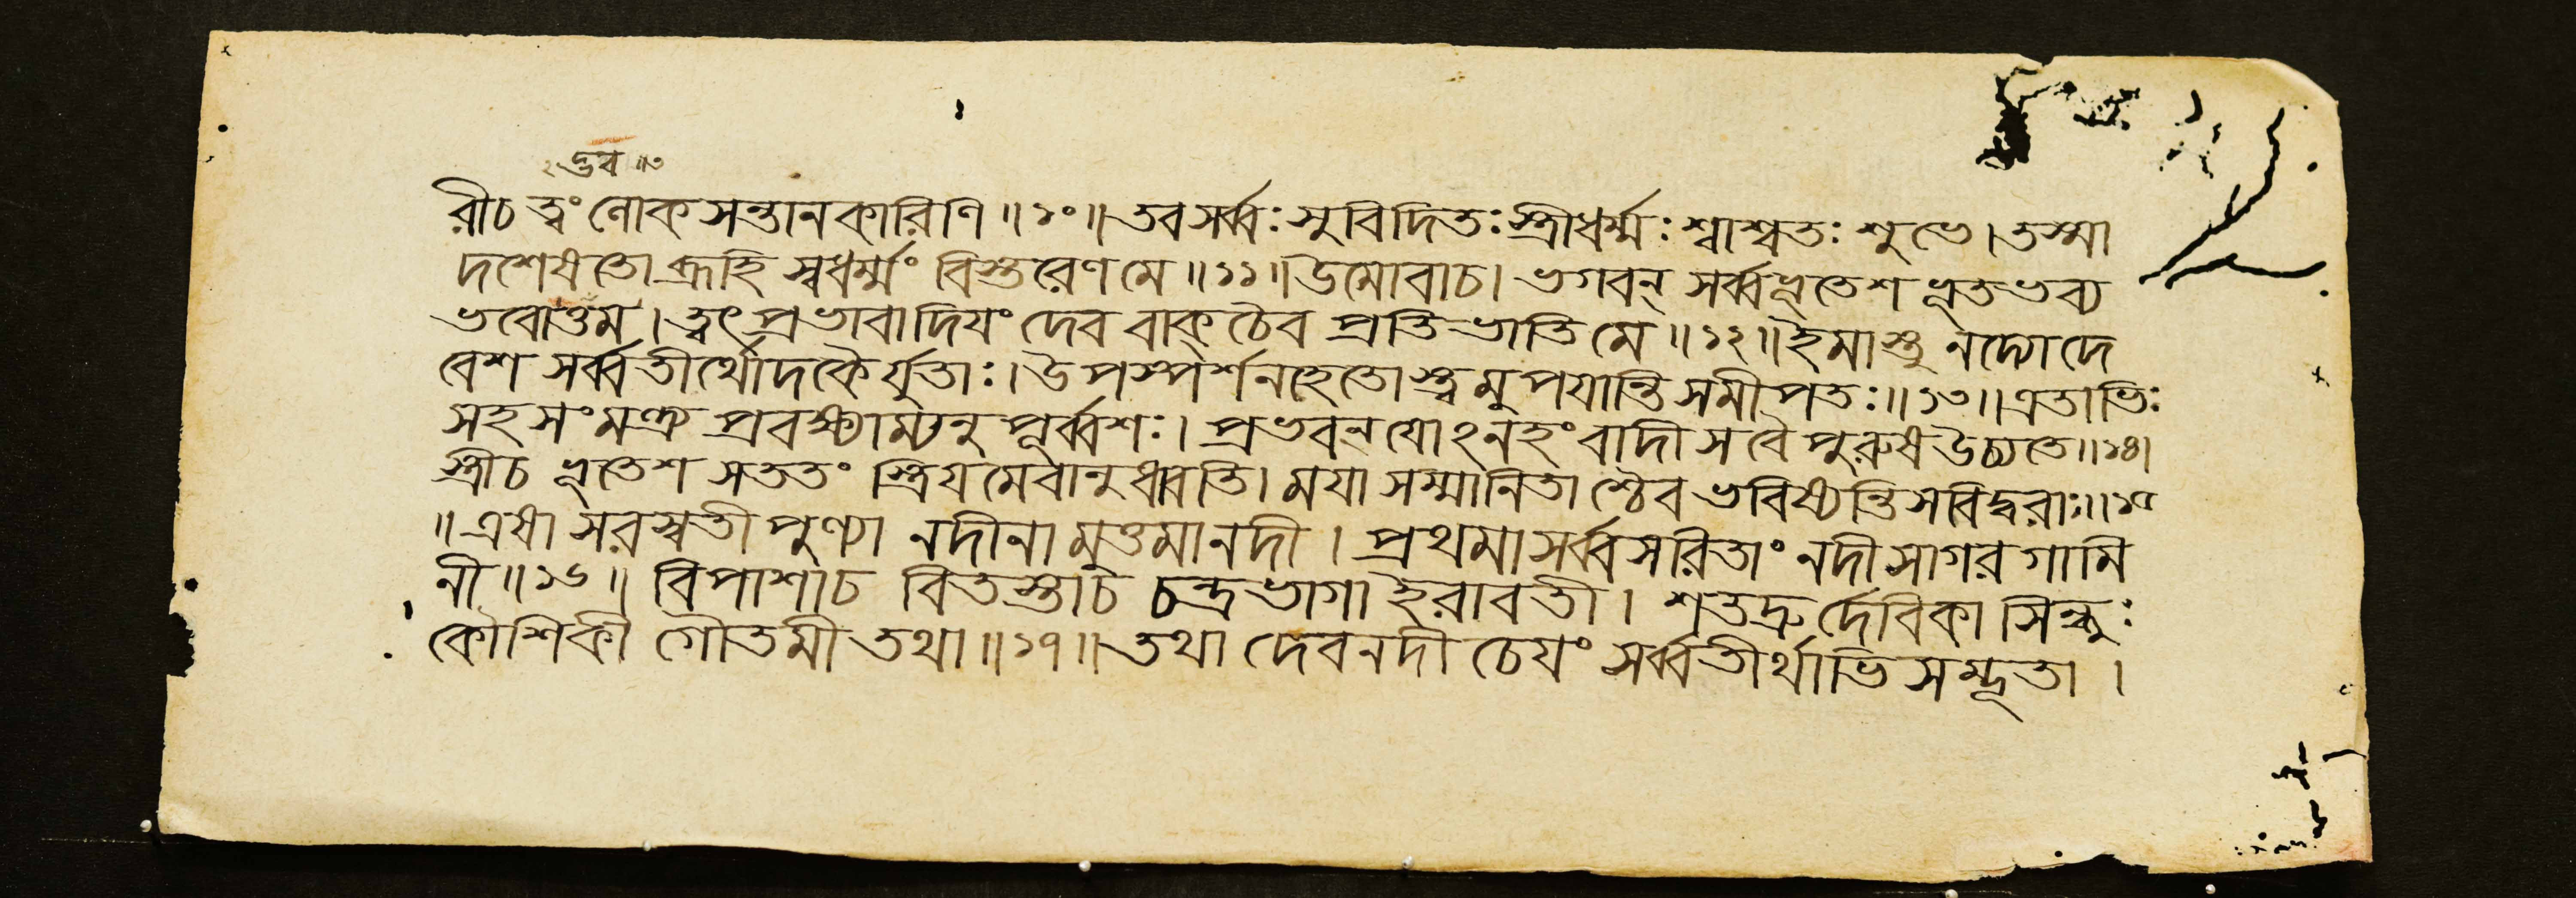 ভব ॥৩
রীচ ত্বং লোকসন্তানকারিণি ॥১০॥ তব সর্ব্বঃ সুবিদিতঃ স্ত্রীধর্ম্মঃ শ্বাশ্বতঃ শুভে । তস্মা
দশেষতো ব্রূহি স্বধর্ম্মং বিস্তরেণ মে ॥১১॥ উমোবাচ । ভগবন্ সর্ব্বভূতেশ ভূতভব্য
ভবোত্তম । ত্বৎপ্রভাবাদিয়ং দেব বাক্ চৈব প্রতিভাতি মে ॥১২॥ ইমাস্তু নদ্যো দে
বেশ সর্ব্বতীর্থোদকৈর্যুতাঃ । উপস্পর্শনহেতোস্ত্বমুপযান্তি সমীপতঃ ॥১৩॥ এতাভিঃ
সহ সংমন্ত্র্য প্রবক্ষ্যাম্যনুপূর্ব্বশঃ । প্রভবন যোঽনহংবাদী স বৈ পুরুষ উচ্যতে ॥১৪।
স্ত্রীচ ভূতেশ সততং স্ত্রিয়মেবানুধাবতি । ময়া সম্মানিতাশ্চৈব ভবিষ্যন্তি সরিদ্বরাঃ ॥১৫
॥ এষা সরস্বতী পুণ্যা নদীনামুত্তমা নদী । প্রথমা সর্ব্বসরিতাং নদী সাগরগামি
নী ॥১৬॥ বিপাশাচ বিতস্তাচ চন্দ্রভাগা ইরাবতী । শতদ্রুর্দেবিকা সিন্ধুঃ
কৌশিকী গৌতমী তথা ॥১৭॥ তথা দেবনদী চেয়ং সর্ব্বতীর্থাভিসম্ভূতা ।